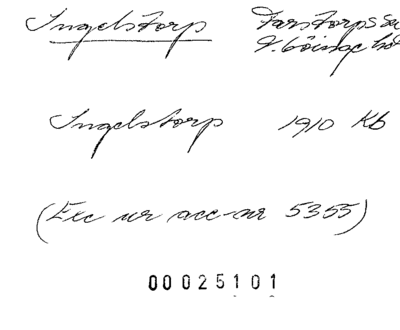 Ingelstorp Farstorps
V. Göinge
Ingelstorp 1910 Kb
(Exc ur acc-nr 5355)
00025101